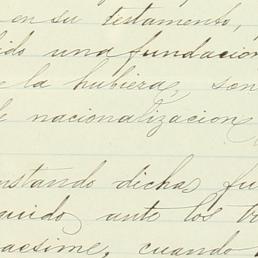 en su testamento,
ido una fundacion
la hubiera, sen
de nacionalizacion
nstando dichas fu
ruido ante los
acsime, cuando